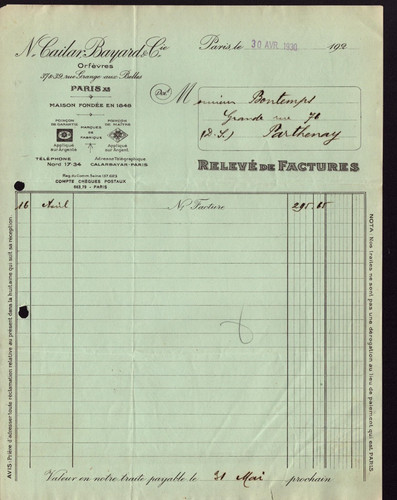 N. Cailar, Bayard & Cie
Orfèvres
37 & 39, rue Grange aux Belles
PARIS
MAISON FONDÉE EN 1848
POINÇON DE GARANTIE
MARQUES DE FABRIQUE
POINÇON DE MAITRE
Appliqué sur Argenté
Appliqué sur Argent
TÉLÉPHONE
Nord 17-34
Adresse Télégraphique
CALARBAYAR-PARIS
Reg. du Comm. Seine
COMPTE CHÈQUES POSTAUX
PARIS
Paris, le 30 AVR. 1930 192
Doit
Monsieur Bontemps
Grande rue 70
(D.S.) Parthenay
RELEVÉ DE FACTURES
16 Avril N/ Facture 295.65
AVIS: Prière d'adresser toute réclamation relative au présent dans la huitaine qui suit sa réception.
NOTA: Nos traites ne sont pas une dérogation au lieu de paiement qui est PARIS
Valeur en notre traite payable le 31 Mai prochain